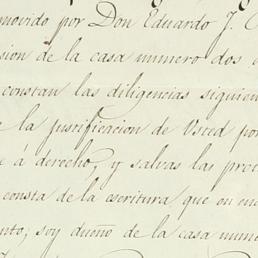 movido por Don Eduardo J.
sion de la casa numero dos
constan las diligencias siguien
la justificacion de Usted por
é á derecho, y salvas las pro
consta de la escritura que en
nto; soy dueño de la casa nume